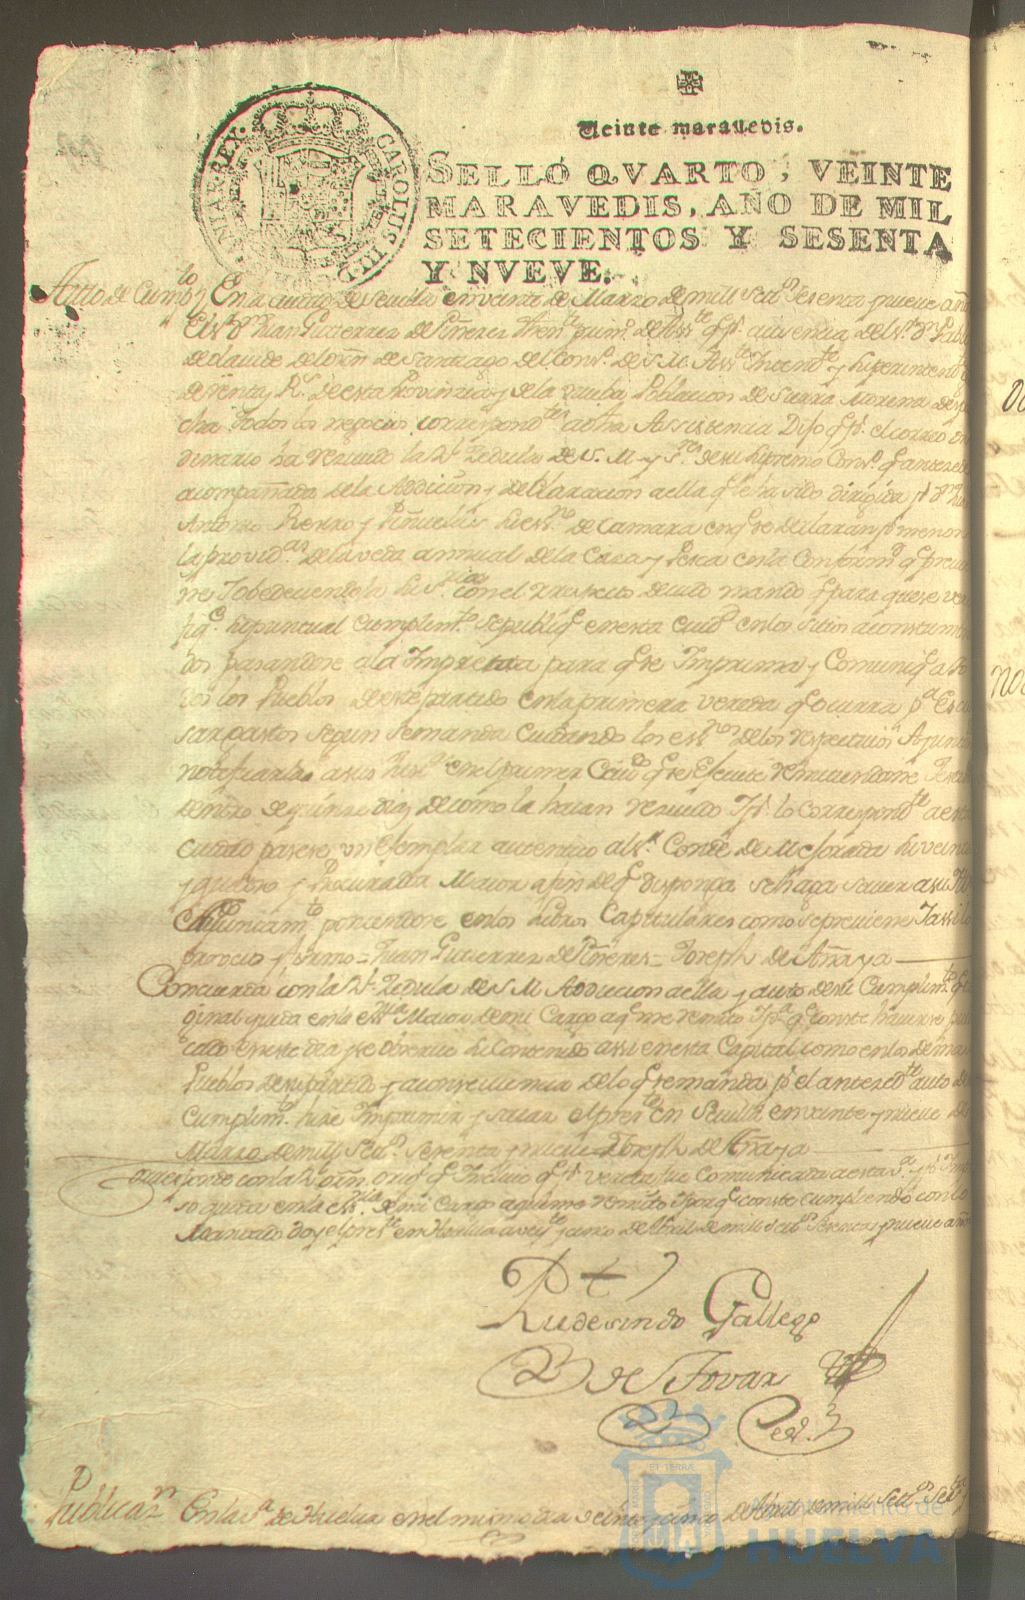 Veinte maravedis.
SELLO QVARTO, VEINTE
MARAVEDIS, AÑO DE MIL
SETECIENTOS Y SESENTA
Y NVEVE.
CAROLUS III D
NIAR REX
Auto de Cump.to En la ciudad de Sevilla en veinte de Marzo de mill set.s sesenta y nueve años
El s.r D.n Juan Gutierrez de Piñeres then.te prim.o de Ass.te q.e p.r ausencia del s.r D.n Pablo
de Olavide del orn de Santiago del Cons.o de S. M. Ass.te Intend.te y Superintend.te
de rentas R.s de esta Provincia y de la nueba Poblacion de Sierra Morena despa
cha todos los negocios correspond.tes a dha Assistencia Dijo q.e p.r el correo or
dinario ha reciuido la R.l Zedula de S. M. y s.res de su supremo Cons.o q.e antecede
acompañada de la Addicion y declaracion a ella q.e le ha sido dirigida p.r D.n
Antonio Rerro y Piñuelas su ess.no de Camara en q.e se declaran p.r menor
las provid.as de la veda annual de la Caza y Pesca en la Conform.d q.e previe
ne y obedeciendola su s.ria con el respecto deuido mando q.e para que se veri
fiq.e su puntual Cumplim.to se publiq.e en esta ciud.d en los sitios acostumbra
dos pasandose a la Imprenta para q.e se Imprima y Comuniq.e a to
dos los Pueblos de este partido en la primera vereda q.e ocurra p.a Escu
sar gastos segun se manda Cuidando los ess.nos de los respectiuos Ayunta
notificarla a sus Just.s en el primer Cauildo q.e se Efectue remitiendome Testim
dentro de quinze dias de como la hauian reciuido Y p.r lo correspond.te a esta
ciudad pasese un Exemplar autentico al s.r Conde de Mejorada su veinte
y quatro y Procurador Maior a fin de q.e disponga se haga sauer a su
Ayuntam.to poniendose en los Libros Capitulares como se previene Y assi lo
proveio y firmo = Juan Gutierrez de Piñeres = Joseph de Anaya
Concuerda con la R.l Zedula de S. M. Addicion a ella y auto de su Cumplim.to q.e
ginal queda en la ess.nia Maior de mi Cargo a q.e me remito Y p.a q.e conste hauerse publi
cado en este dia y se obserue su Contenido assi en esta Capital como en los demas
Pueblos de su partido y a consecuencia de lo q.e se manda p.r el anteced.te auto de
Cumplim.to hize Imprimir y sacar el pres.te En Sevilla en veinte y nueve de
Marzo de mill set.s sesenta y nueve Joseph de Anaya
Concuerda con la R.l orn orig.l q.e Incluio q.e p.r vereda fue Comunicada a esta v.a y p.r
so queda en la ess.nia de mi Cargo a q.e me remito Y para q.e conste cumpliendo con lo
Mandado doy el pres.te en Huelva a veinte y cinco de Abril de mill set.s sesenta y nueve años
Rudesindo Gallego
de Tovar
Publica.n En la v.a de Huelva en el mismo dia veinte y cinco de Abril de mill set.s
ET TERRÆ
Ayuntamiento de
HUELVA